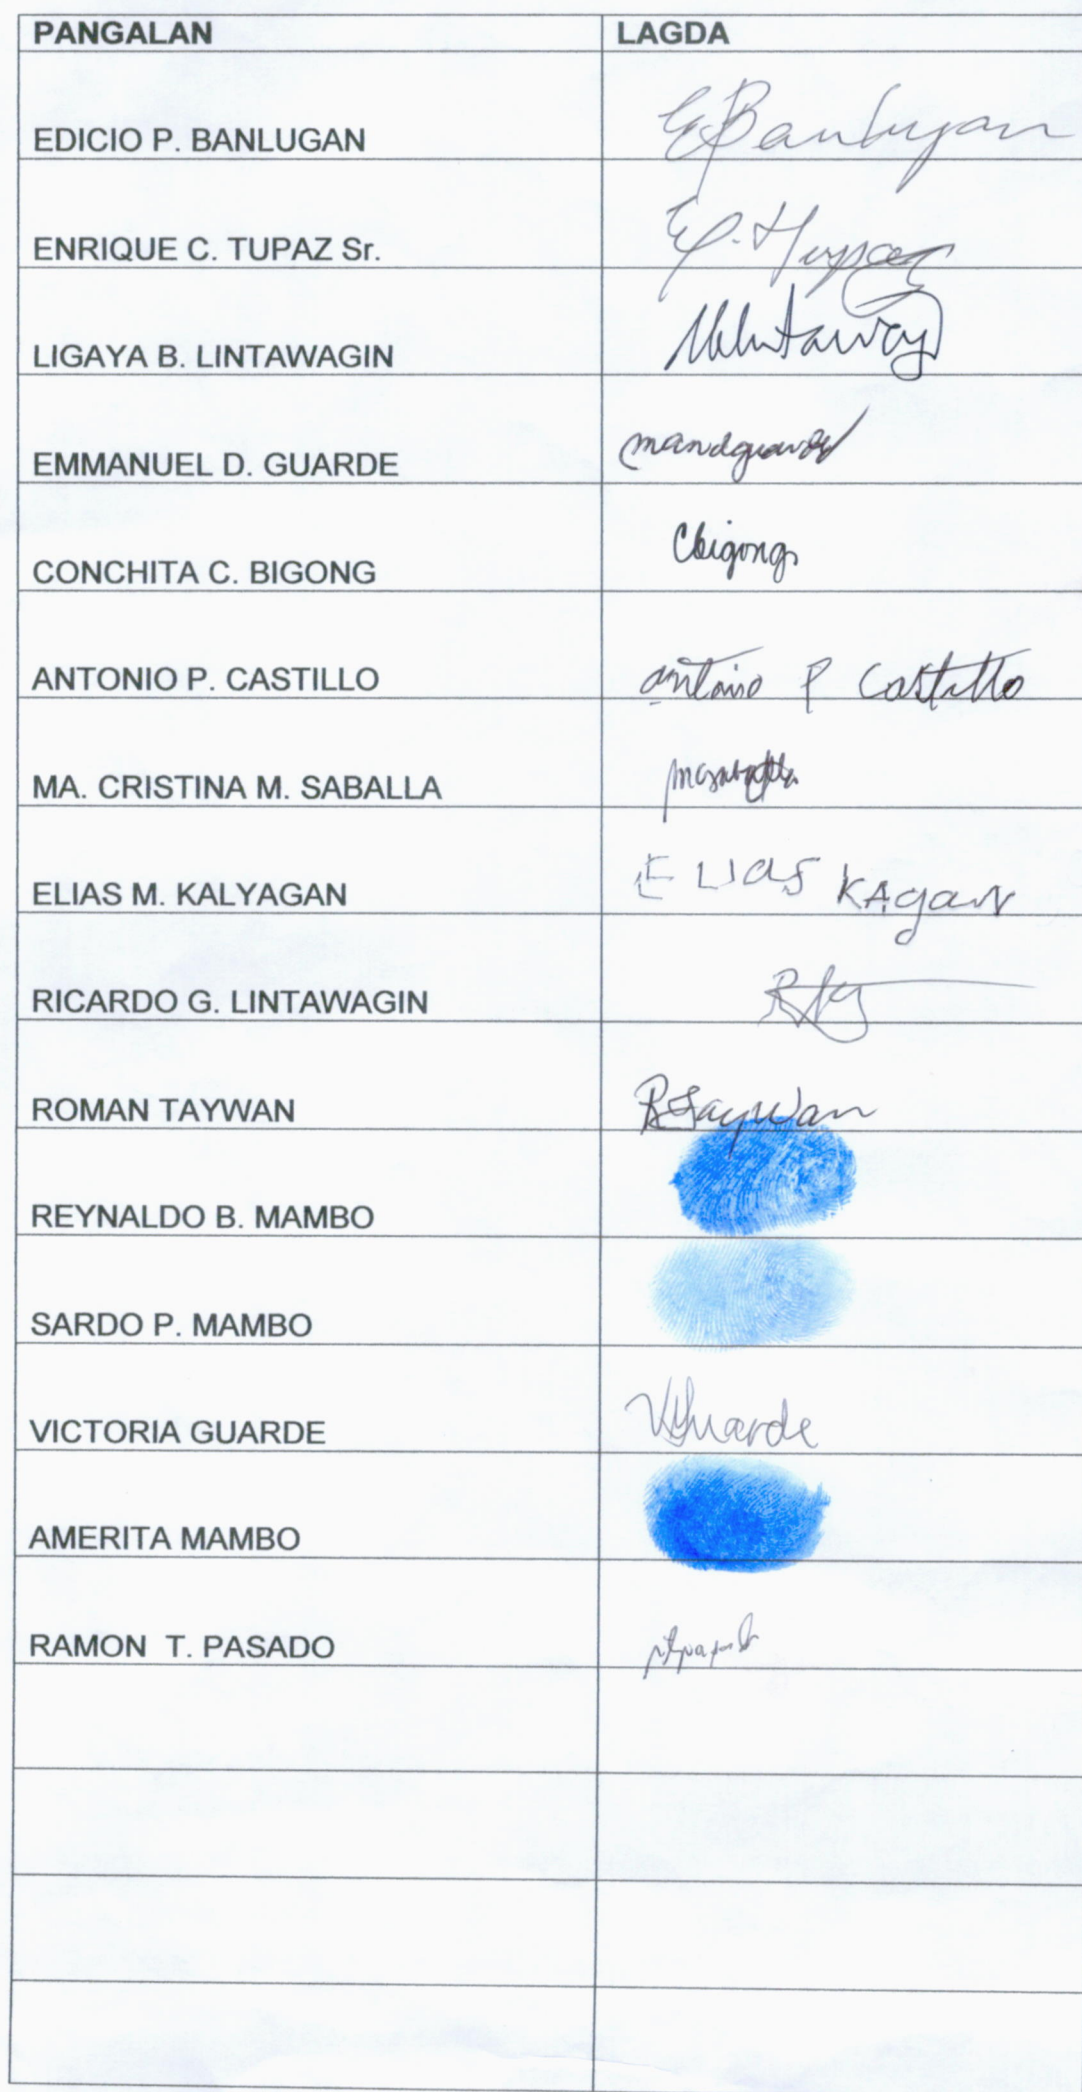 PANGALAN LAGDA
EDICIO P. BANLUGAN EBanlugan
ENRIQUE C. TUPAZ Sr.
LIGAYA B. LINTAWAGIN
EMMANUEL D. GUARDE mandguarde
CONCHITA C. BIGONG Cbigong
ANTONIO P. CASTILLO antonio P Castillo
MA. CRISTINA M. SABALLA
ELIAS M. KALYAGAN ELIAS KAgan
RICARDO G. LINTAWAGIN
ROMAN TAYWAN RTaywan
REYNALDO B. MAMBO
SARDO P. MAMBO
VICTORIA GUARDE VGuarde
AMERITA MAMBO
RAMON T. PASADO